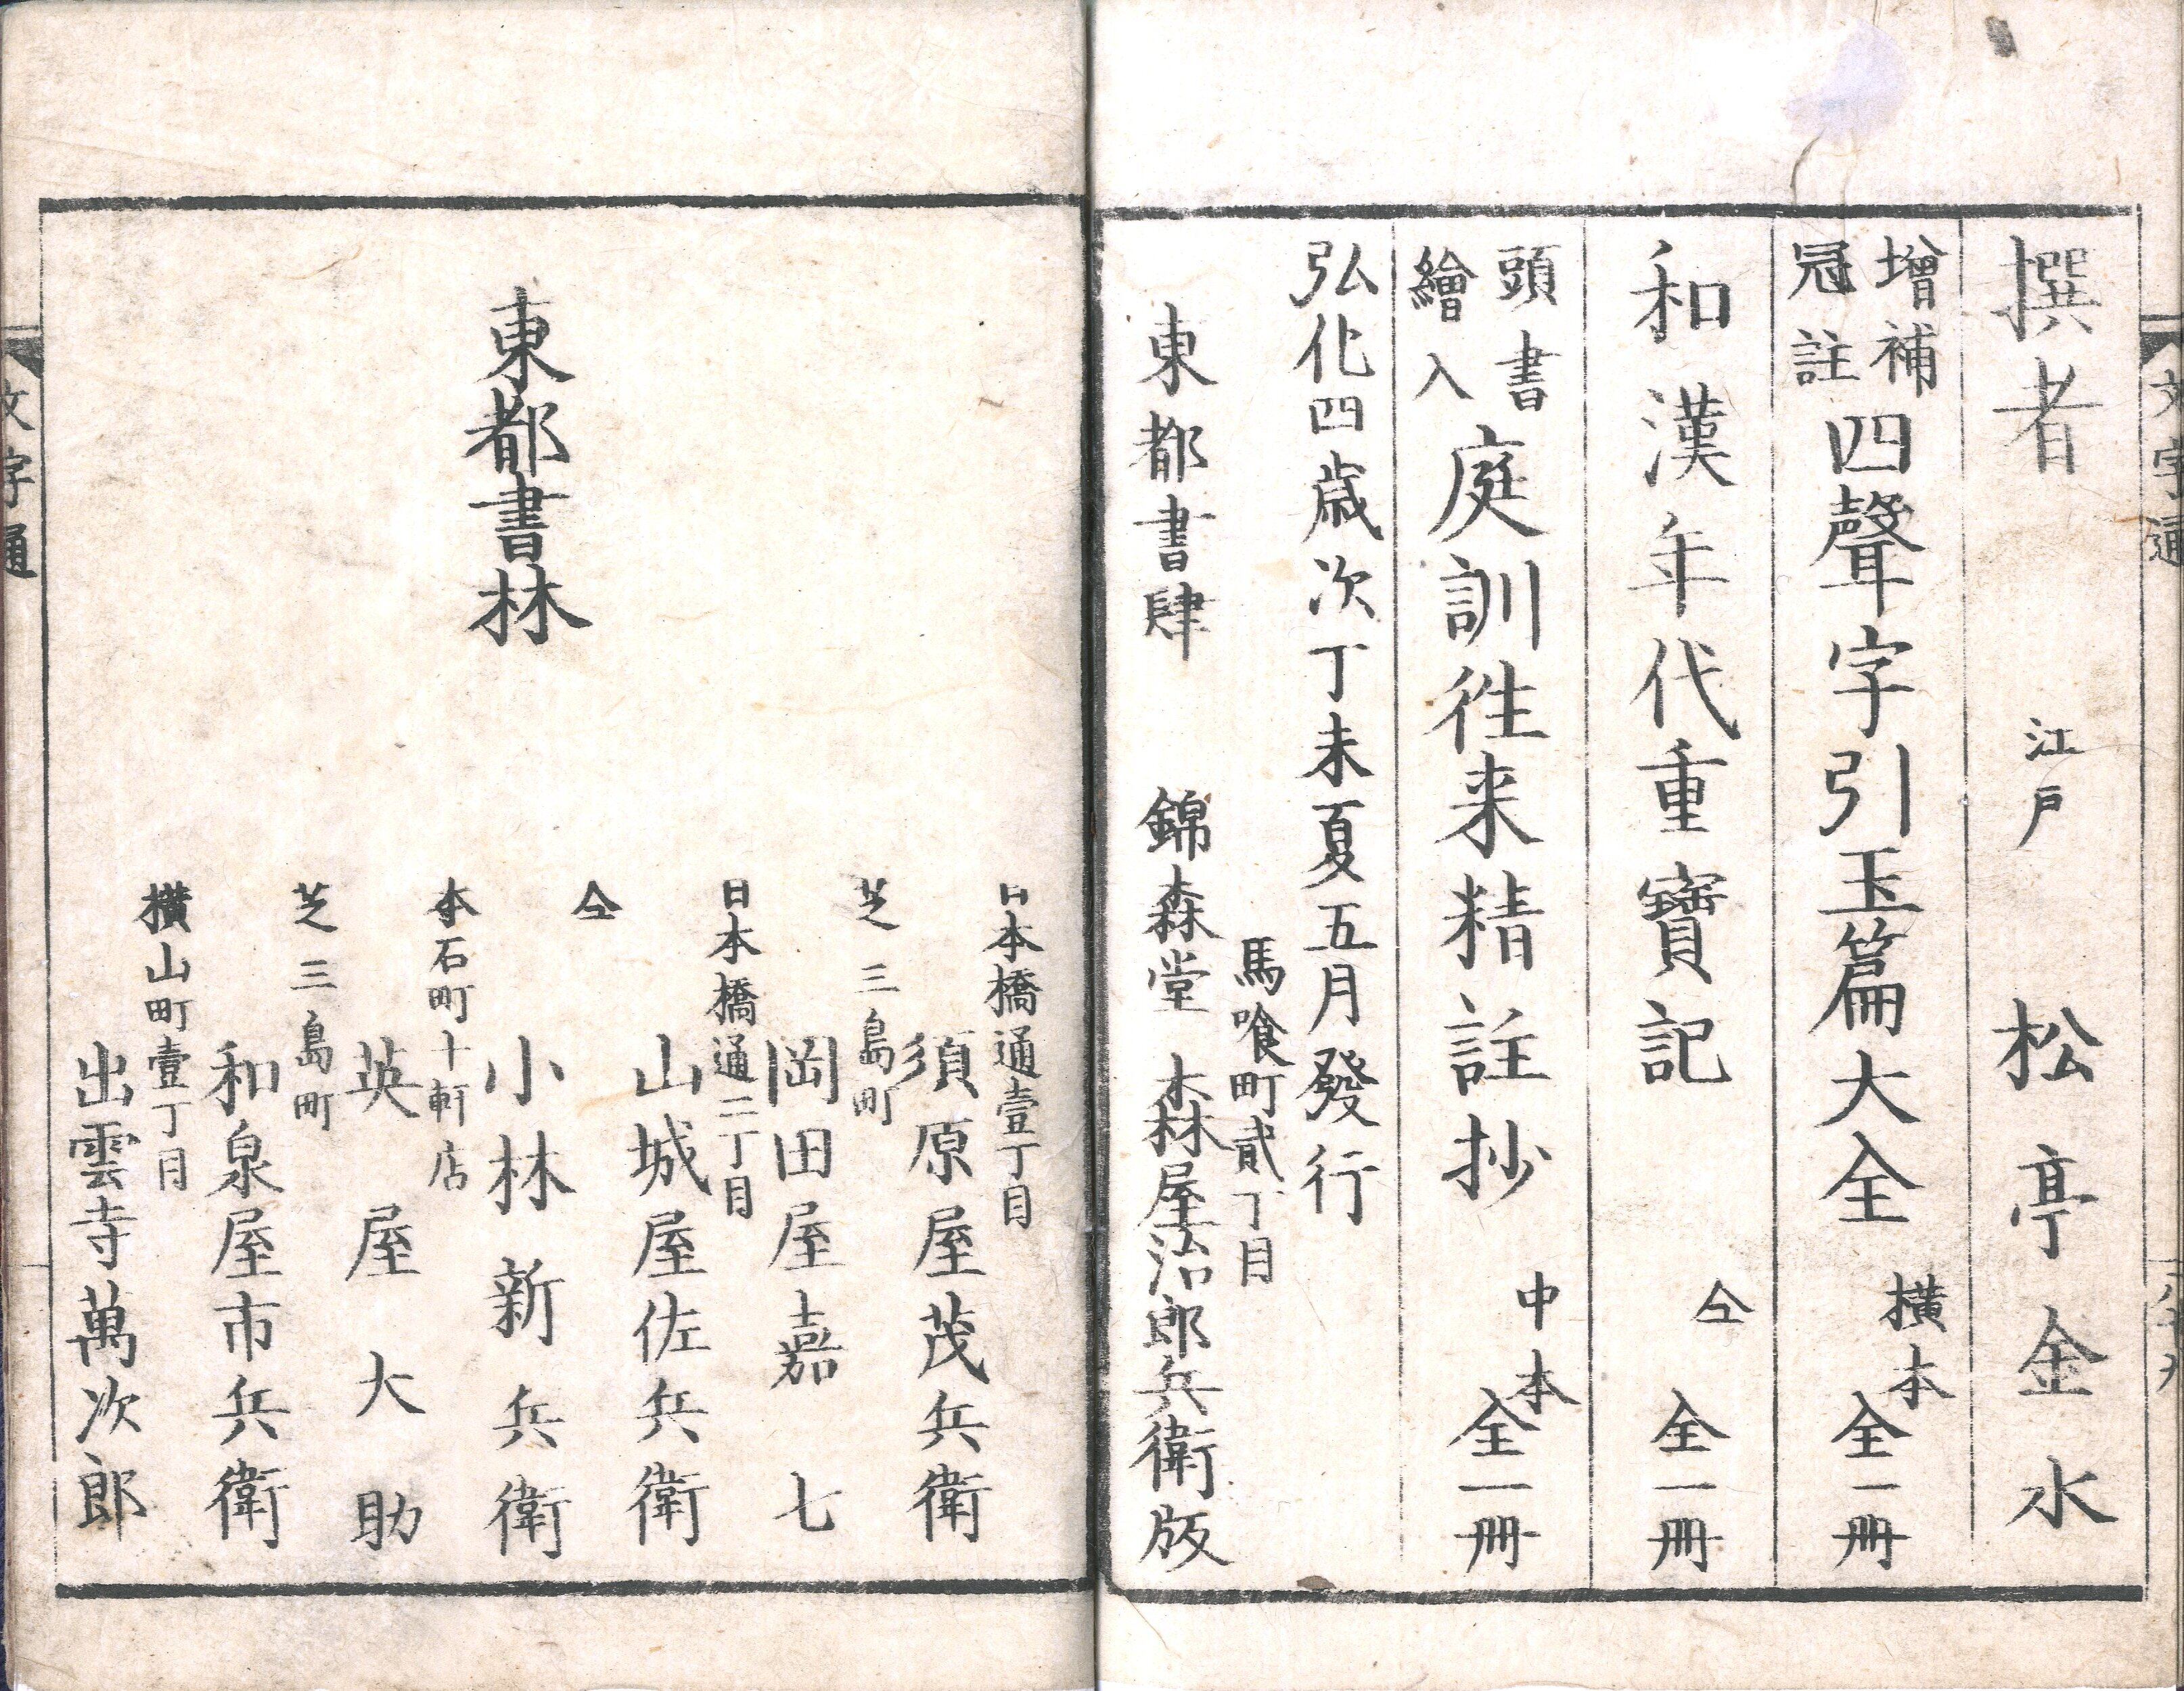 撰者 江戸 松亭金水
增補
冠註
四聲字引玉篇大全 横本 全一冊
和漢年代重寶記 仝 全一冊
頭書
繪入
庭訓徃来精註抄 中本 全一冊
弘化四歳次丁未夏五月發行
馬喰町貳丁目
東都書肆 錦森堂 森屋治郎兵衛版
東都書林
日本橋通壹丁目
須原屋茂兵衛
芝三島町
岡田屋嘉七
日本橋通二丁目
山城屋佐兵衛
仝
小林新兵衛
本石町十軒店
英屋大助
芝三島町
和泉屋市兵衛
横山町壹丁目
出雲寺萬次郎
文字通